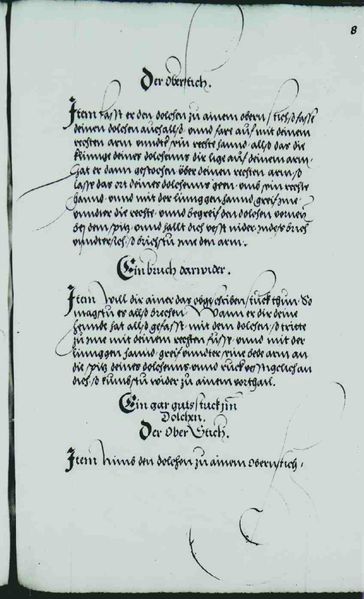 8
Der oberstich.
Item fasst er den dolchen zu ainem obern stich so fasse
deinen dolchen auch also vnnd far auf mit deinem
rechten arm vnnder sein rechte hannd also das die
klinnge deines dolchenns dir lige auf deinem arm
hat er dann gestochen vber deinen rechten arm so
lasse das ort deines dolchenns geen vmb sein rechte
hannd vnnd mit der linnggen hannd greif Ime
vnnder die rechte vnnd begreif den dolchen
bey dem spitz vnnd halt dich vesst nider
vnndersich so brichstu Ime den arm.
Ein bruch darwider.
Item Woll dir ainer das obgeschriben stuck thun. So
magstu es also brechen Wann er dir deine
hennde hat also gefasst mit dem dolchen so tritte
zu Ime mit deinem rechten fuosse vnnd mit der
linnggen hannd greif vnnder sein bede arm an
die spitz deines dolchenns vnnd ruck vesstigclich an
dich so kumbstu wider zu ainem vorthail.
Ein gar guts stuck Im
Dolchen.
Der Ober Stich.
Item Nimb den dolchen zu ainem obern stich.